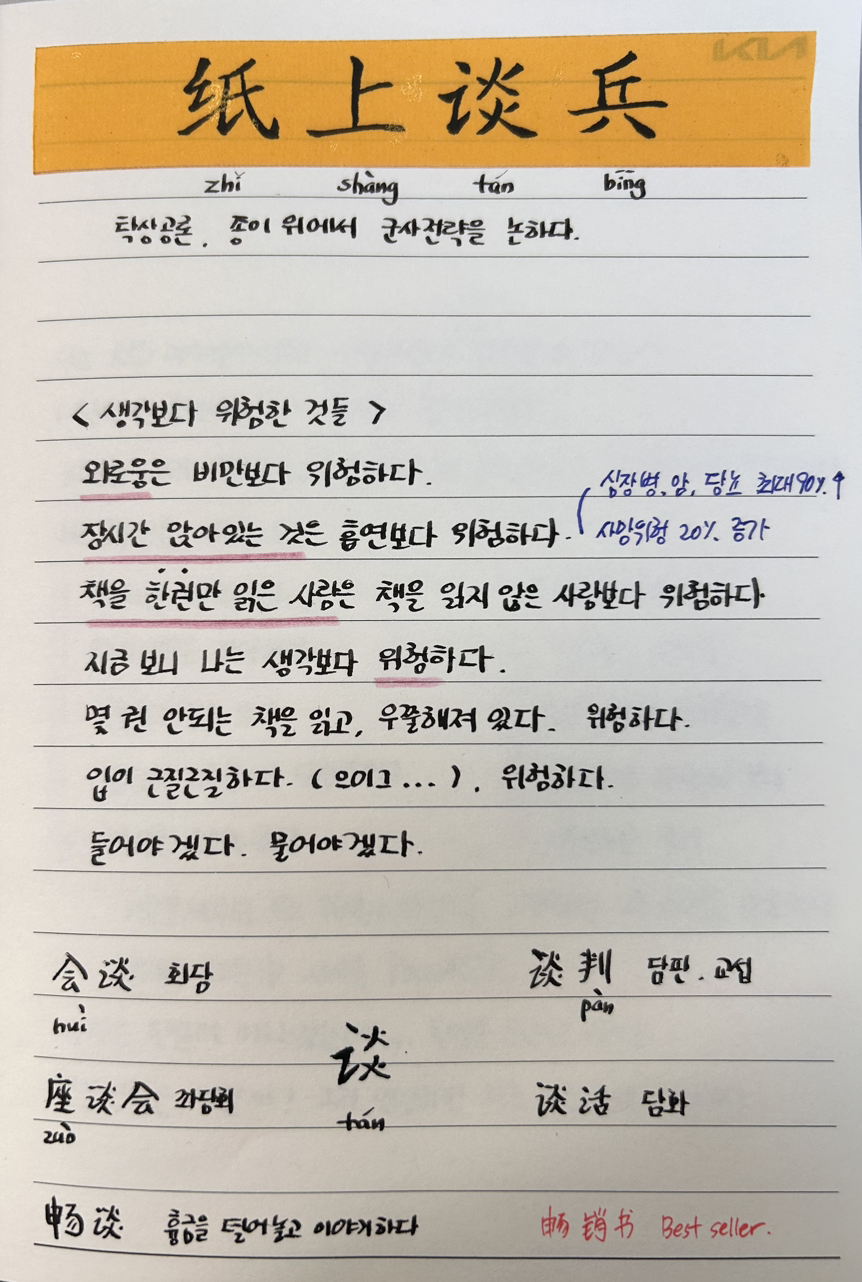 KIA
纸上谈兵
zhǐ shàng tán bīng
탁상공론. 종이 위에서 군사전략을 논하다.
< 생각보다 위험한 것들 >
외로움은 비만보다 위험하다.
심장병, 암, 당뇨 최대 90% ↑
장시간 앉아있는 것은 흡연보다 위험하다.
사망위험 20% 증가
책을 한권만 읽은 사람은 책을 읽지 않은 사람보다 위험하다
지금 보니 나는 생각보다 위험하다.
몇 권 안되는 책을 읽고, 우쭐해져 있다. 위험하다.
입이 근질근질하다. (으이그...). 위험하다.
들어야겠다. 물어야겠다.
会谈 회담
谈判 담판. 교섭
huì
pàn
谈
tán
座谈会 좌담회
谈话 담화
zuò
畅谈 흉금을 털어놓고 이야기하다
畅销书 Best seller.